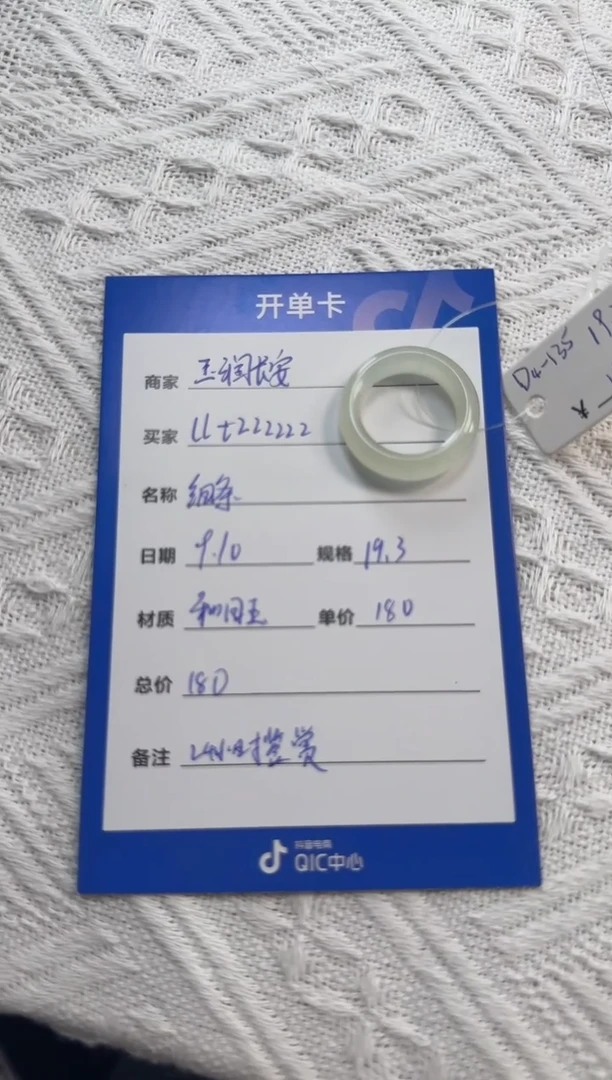 开单卡
商家 玉润长安
买家 llt222222
名称
日期 9.10 规格 19.3
材质 和田玉 单价 180
总价 180
备注 24小时鉴赏
抖音电商
QIC中心
D4-135 19